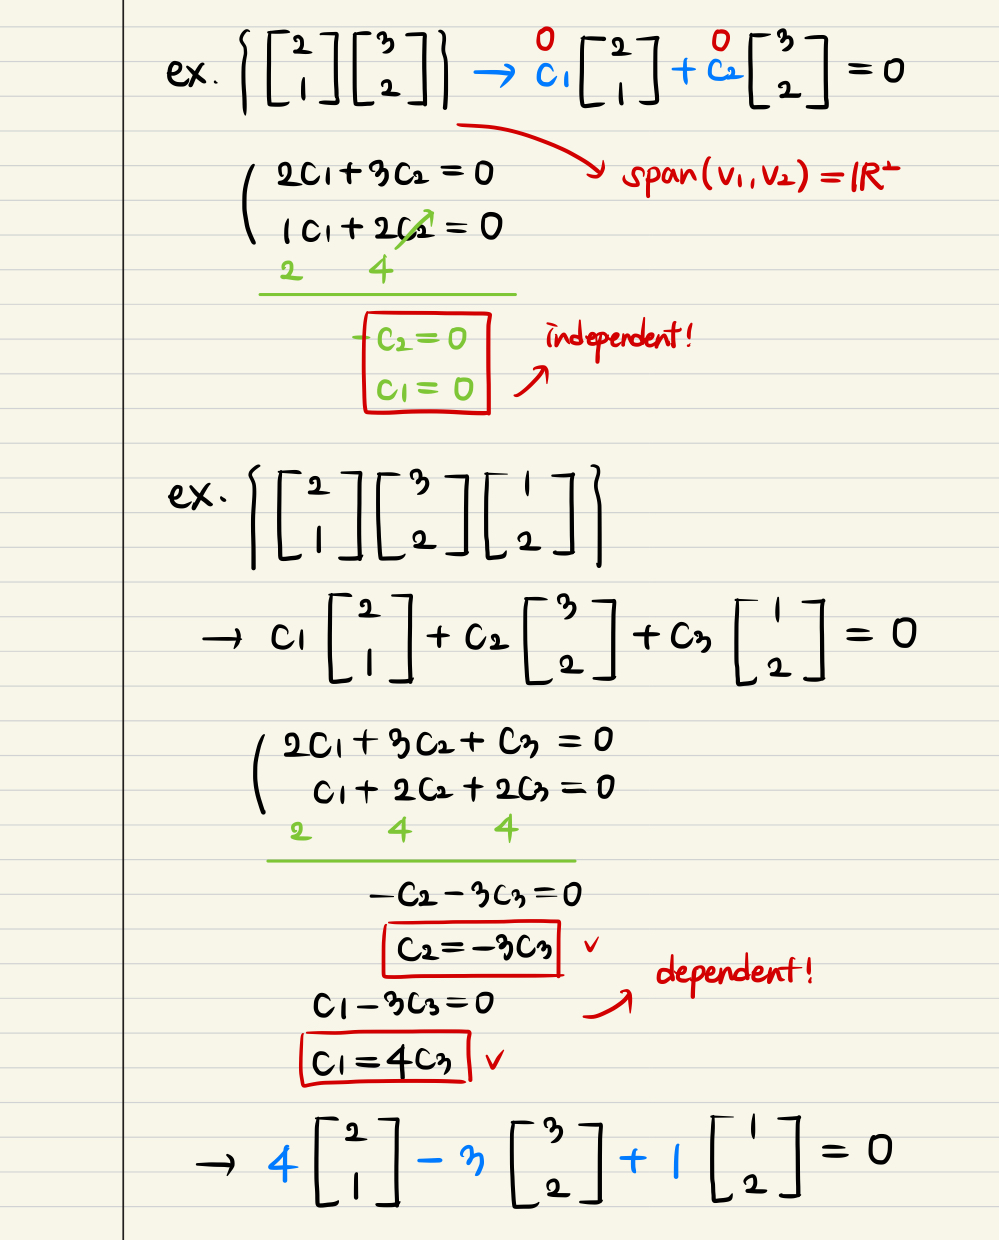 ex. { [2 1] [3 2] } → c₁ [2 1] + c₂ [3 2] = 0
0 0
span(v₁, v₂) = ℝ²
2c₁ + 3c₂ = 0
1c₁ + 2c₂ = 0
2 4
-c₂ = 0
c₁ = 0
independent!
ex. { [2 1] [3 2] [1 2] }
→ c₁ [2 1] + c₂ [3 2] + c₃ [1 2] = 0
2c₁ + 3c₂ + c₃ = 0
c₁ + 2c₂ + 2c₃ = 0
2 4 4
-c₂ - 3c₃ = 0
c₂ = -3c₃ ✓
dependent!
c₁ - 3c₃ = 0
c₁ = 4c₃ ✓
→ 4 [2 1] - 3 [3 2] + 1 [1 2] = 0